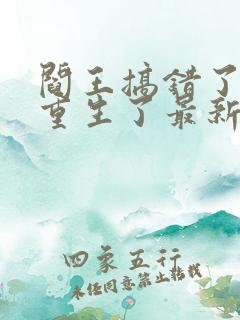 阎王搞错了
重生了最新
四象五行
未经同意禁止转载